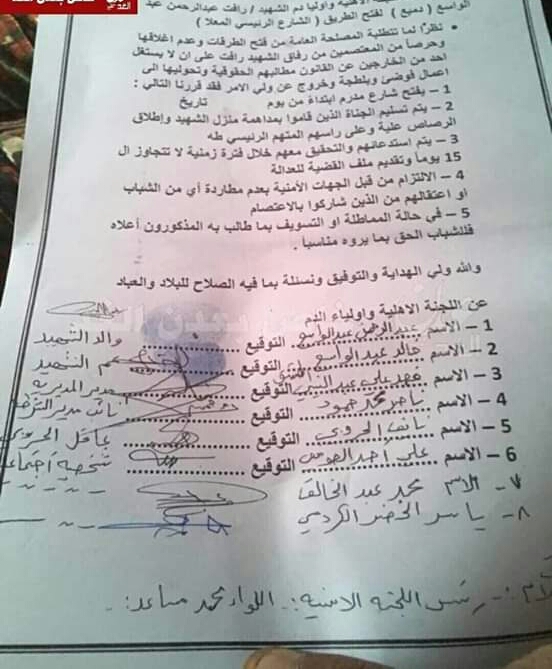 الأهلية وأوليا دم الشهيد / رأفت عبدالرحمن عبد
الواسع ( دمبع ) لفتح الطريق ( الشارع الرئيسي المعلا )
• نظرًا لما تتطلبة المصلحة العامة من فتح الطرقات وعدم اغلاقها
وحرصاً من المعتصمين من رفاق الشهيد رافت على ان لا يستغل
احد من الخارجين عن القانون مطالبهم الحقوقية وتحوليها الى
اعمال فوضى وبلطجة وخروج عن ولي الامر فقد قررنا التالي :
1 – يفتح شارع مدرم ابتداءً من يوم تاريخ
2 – يتم تسليم الجناة الذين قاموا بمداهمة منزل الشهيد وإطلاق
الرصاص علية وعلى راسهم المتهم الرئيسي طه
3 – يتم استدعائهم والتحقيق معهم خلال فترة زمنية لا تتجاوز ال
15 يوماً وتقديم ملف القضية للعدالة
4 – الالتزام من قبل الجهات الأمنية بعدم مطاردة أي من الشباب
او اعتقالهم من الذين شاركوا بالاعتصام
5 – في حالة المماطلة او التسويف بما طالب به المذكورون أعلاه
فللشباب الحق بما يروه مناسباً .
والله ولي الهداية والتوفيق ونسئلة بما فيه الصلاح للبلاد والعباد
عن اللجنة الاهلية واولياء الدم
1 – الاسم عبدالرحمن عبدالواسع التوقيع والد الشهيد
2 – الاسم خالد عبدالواسع التوقيع عم الشهيد
3 – الاسم فهد علي التوقيع مدير المديرية
4 – الاسم ناصر محمد حمود التوقيع نائب مدير
5 – الاسم نائف الحروي التوقيع عاقل
6 – الاسم علي أحمد التوقيع شخصية اجتماعية
٧ – الاسم محمد عبد الخالق
٨ – ياسر الخضر الكردي
رئيس اللجنة الامنية :- اللواء محمد مساعد :-